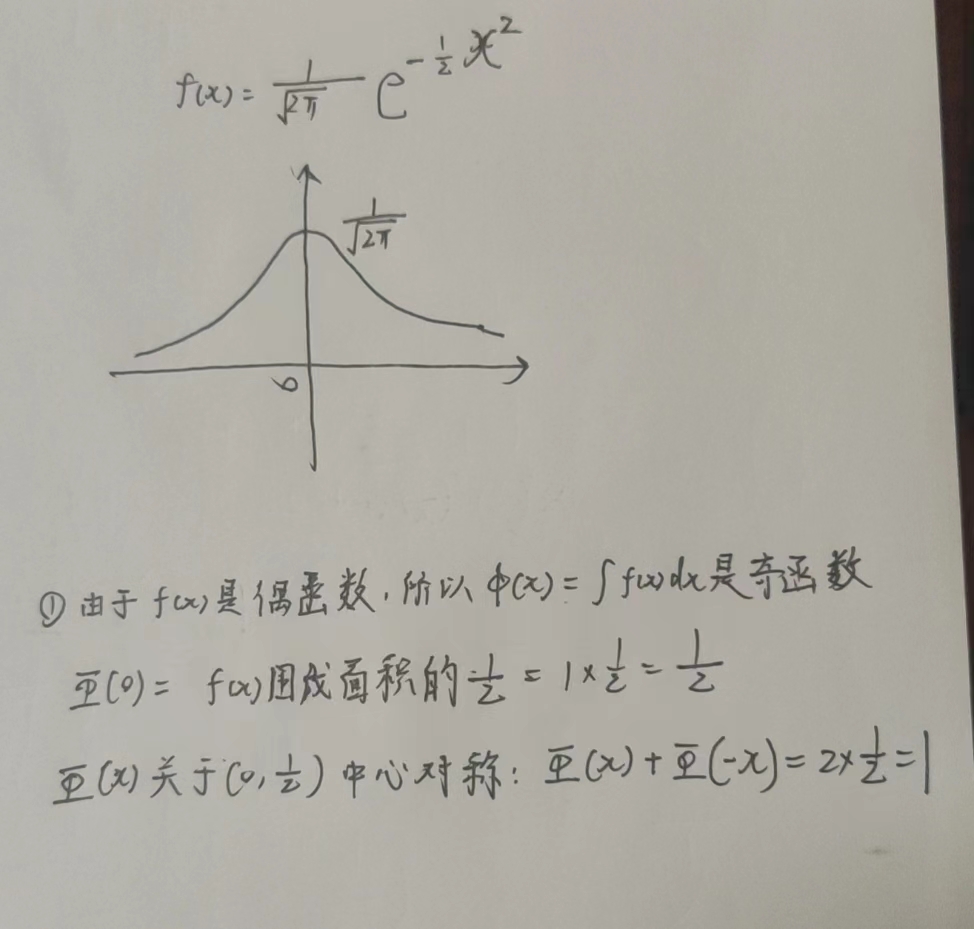 f(x) = 1/√2π e^(-1/2 x²)
1/√2π
0
① 由于 f(x) 是偶函数, 所以 φ(x) = ∫f(x)dx 是奇函数
Φ(0) = f(x)围成面积的 1/2 = 1×1/2 = 1/2
Φ(x) 关于 (0, 1/2) 中心对称: Φ(x) + Φ(-x) = 2×1/2 = 1